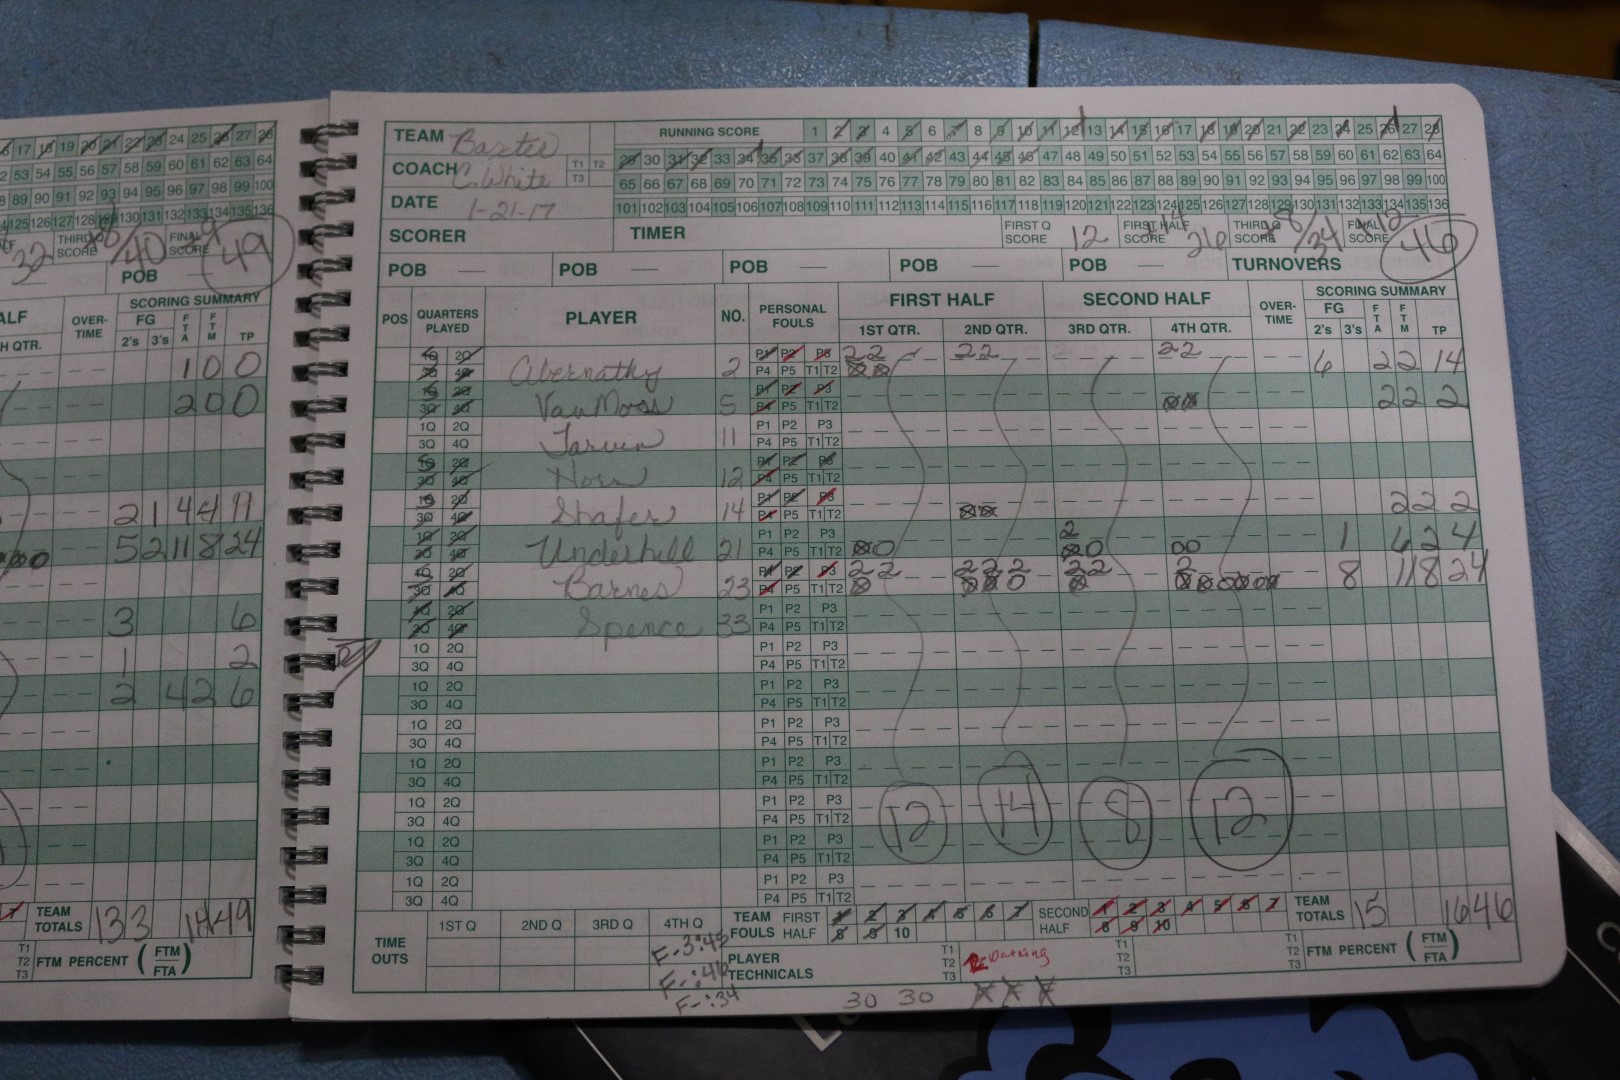 TEAM Baxter
RUNNING SCORE 1 2 3 4 5 6 7 8 9 10 11 12 13 14 15 16 17 18 19 20 21 22 23 24 25 26 27 28
29 30 31 32 33 34 35 36 37 38 39 40 41 42 43 44 45 46 47 48 49 50 51 52 53 54 55 56 57 58 59 60 61 62 63 64
COACH C. White T1 T2 T3
65 66 67 68 69 70 71 72 73 74 75 76 77 78 79 80 81 82 83 84 85 86 87 88 89 90 91 92 93 94 95 96 97 98 99 100
DATE 1-21-17
101 102 103 104 105 106 107 108 109 110 111 112 113 114 115 116 117 118 119 120 121 122 123 124 125 126 127 128 129 130 131 132 133 134 135 136
SCORER TIMER FIRST Q SCORE 12 FIRST HALF SCORE +14 26 THIRD Q SCORE +8/34 FINAL SCORE +12 46
POB — POB — POB — POB — POB — TURNOVERS
POS QUARTERS PLAYED PLAYER NO. PERSONAL FOULS FIRST HALF SECOND HALF OVER-TIME SCORING SUMMARY
1ST QTR. 2ND QTR. 3RD QTR. 4TH QTR. FG 2's 3's FTA FTM TP
1Q 2Q 3Q 4Q Abernathy 2 P1 P2 P3 P4 P5 T1 T2 22 22 22 6 2 2 14
1Q 2Q 3Q 4Q VanMoss 5 P1 P2 P3 P4 P5 T1 T2 2 2 2
1Q 2Q 3Q 4Q Tarvin 11 P1 P2 P3 P4 P5 T1 T2
1Q 2Q 3Q 4Q Horn 12 P1 P2 P3 P4 P5 T1 T2
1Q 2Q 3Q 4Q Shafer 14 P1 P2 P3 P4 P5 T1 T2 2 2 2
1Q 2Q 3Q 4Q Underhill 21 P1 P2 P3 P4 P5 T1 T2 2 1 6 2 4
1Q 2Q 3Q 4Q Barnes 23 P1 P2 P3 P4 P5 T1 T2 22 222 22 2 8 11 8 24
1Q 2Q 3Q 4Q Spence 33 P1 P2 P3 P4 P5 T1 T2
1Q 2Q 3Q 4Q P1 P2 P3 P4 P5 T1 T2
1Q 2Q 3Q 4Q P1 P2 P3 P4 P5 T1 T2
1Q 2Q 3Q 4Q P1 P2 P3 P4 P5 T1 T2
1Q 2Q 3Q 4Q P1 P2 P3 P4 P5 T1 T2
1Q 2Q 3Q 4Q P1 P2 P3 P4 P5 T1 T2 12 14 8 12
1Q 2Q 3Q 4Q P1 P2 P3 P4 P5 T1 T2
1Q 2Q 3Q 4Q P1 P2 P3 P4 P5 T1 T2
TIME OUTS 1ST Q 2ND Q 3RD Q 4TH Q
F-3:45
F-:46
F-:34
TEAM FOULS FIRST HALF 1 2 3 4 5 6 7 8 9 10 SECOND HALF 1 2 3 4 5 6 7 8 9 10 TEAM TOTALS 15 16 46
PLAYER TECHNICALS T1 T2 T3 Warning T1 T2 T3 T1 T2 T3 FTM PERCENT (FTM/FTA)
30 30
17 18 19 20 21 22 23 24 25 26 27 28
53 54 55 56 57 58 59 60 61 62 63 64
89 90 91 92 93 94 95 96 97 98 99 100
125 126 127 128 129 130 131 132 133 134 135 136
32 THIRD Q SCORE +8/40 FINAL SCORE +9 49
POB —
OVER-TIME SCORING SUMMARY
FG 2's 3's FTA FTM TP
1 0 0
2 0 0
2 1 4 4 11
5 2 11 8 24
3 6
1 2
2 4 2 6
TEAM TOTALS 13 3 14 49
T1 T2 T3 FTM PERCENT (FTM/FTA)